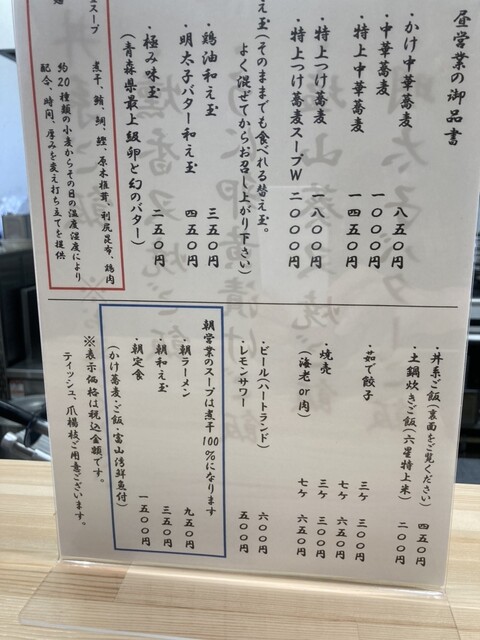 昼営業の御品書
・かけ中華蕎麦 八五〇円
・中華蕎麦 一〇〇〇円
・特上中華蕎麦 一四五〇円
・特上つけ蕎麦 一八〇〇円
・特上つけ蕎麦スープW 二〇〇〇円
え玉(そのままでも食べれる替え玉。
よく混ぜてからお召し上がり下さい)
・鶏油和え玉 三五〇円
・明太子バター和え玉 四五〇円
・極み味玉 二五〇円
(青森県最上級卵と幻のバター)
スープ 煮干、鮪、鯛、鰹、原木椎茸、利尻昆布、鶏肉
約20種類の小麦からその日の温度湿度により
配合、時間、厚みを変え打ち立てを提供
・丼系ご飯(裏面をご覧ください) 四五〇円
・土鍋炊きご飯(六星特上米) 二〇〇円
・茹で餃子 三ケ 三〇〇円
七ケ 六五〇円
・焼売 三ケ 三〇〇円
(海老or肉) 七ケ 六五〇円
・ビール(ハートランド) 六〇〇円
・レモンサワー 五〇〇円
朝営業のスープは煮干100%になります
・朝ラーメン 九五〇円
・朝和え玉 三五〇円
・朝定食 一五〇〇円
(かけ蕎麦・ご飯・富山湾鮮魚付)
※表示価格は税込金額です。
ティッシュ、爪楊枝ご用意ございます。